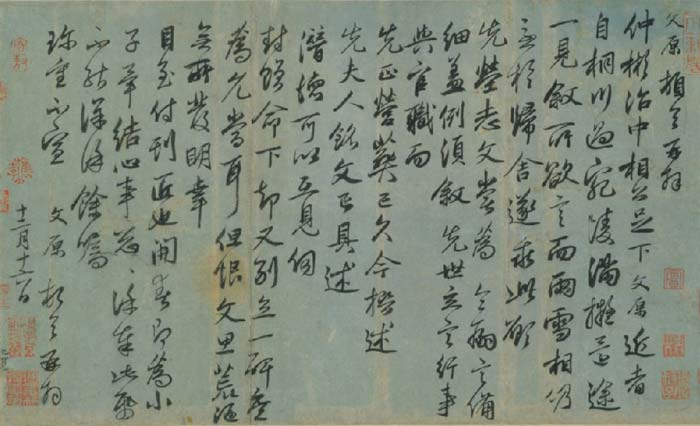 文原頓首再拜
仲彬治中相公足下文原近者
自桐川過宛陵滿擬途
一見敘所欲言而雨雪相仍
亟於歸舍遂乖此願
先塋志文嘗為令嗣言備
細蓋例須敘先世立言行事
與官職而
先正塋葬已久今撰述
先夫人銘文具述
潛德可以互見倘
封贈命下却又別立一碑
為允當耳但恨文思荒澀
無所發明幸
目至付刊匠也開春即為小
子畢結心事忽忽
不能詳餘冀
珍重不宣 文原 頓首再拜
十二月十日